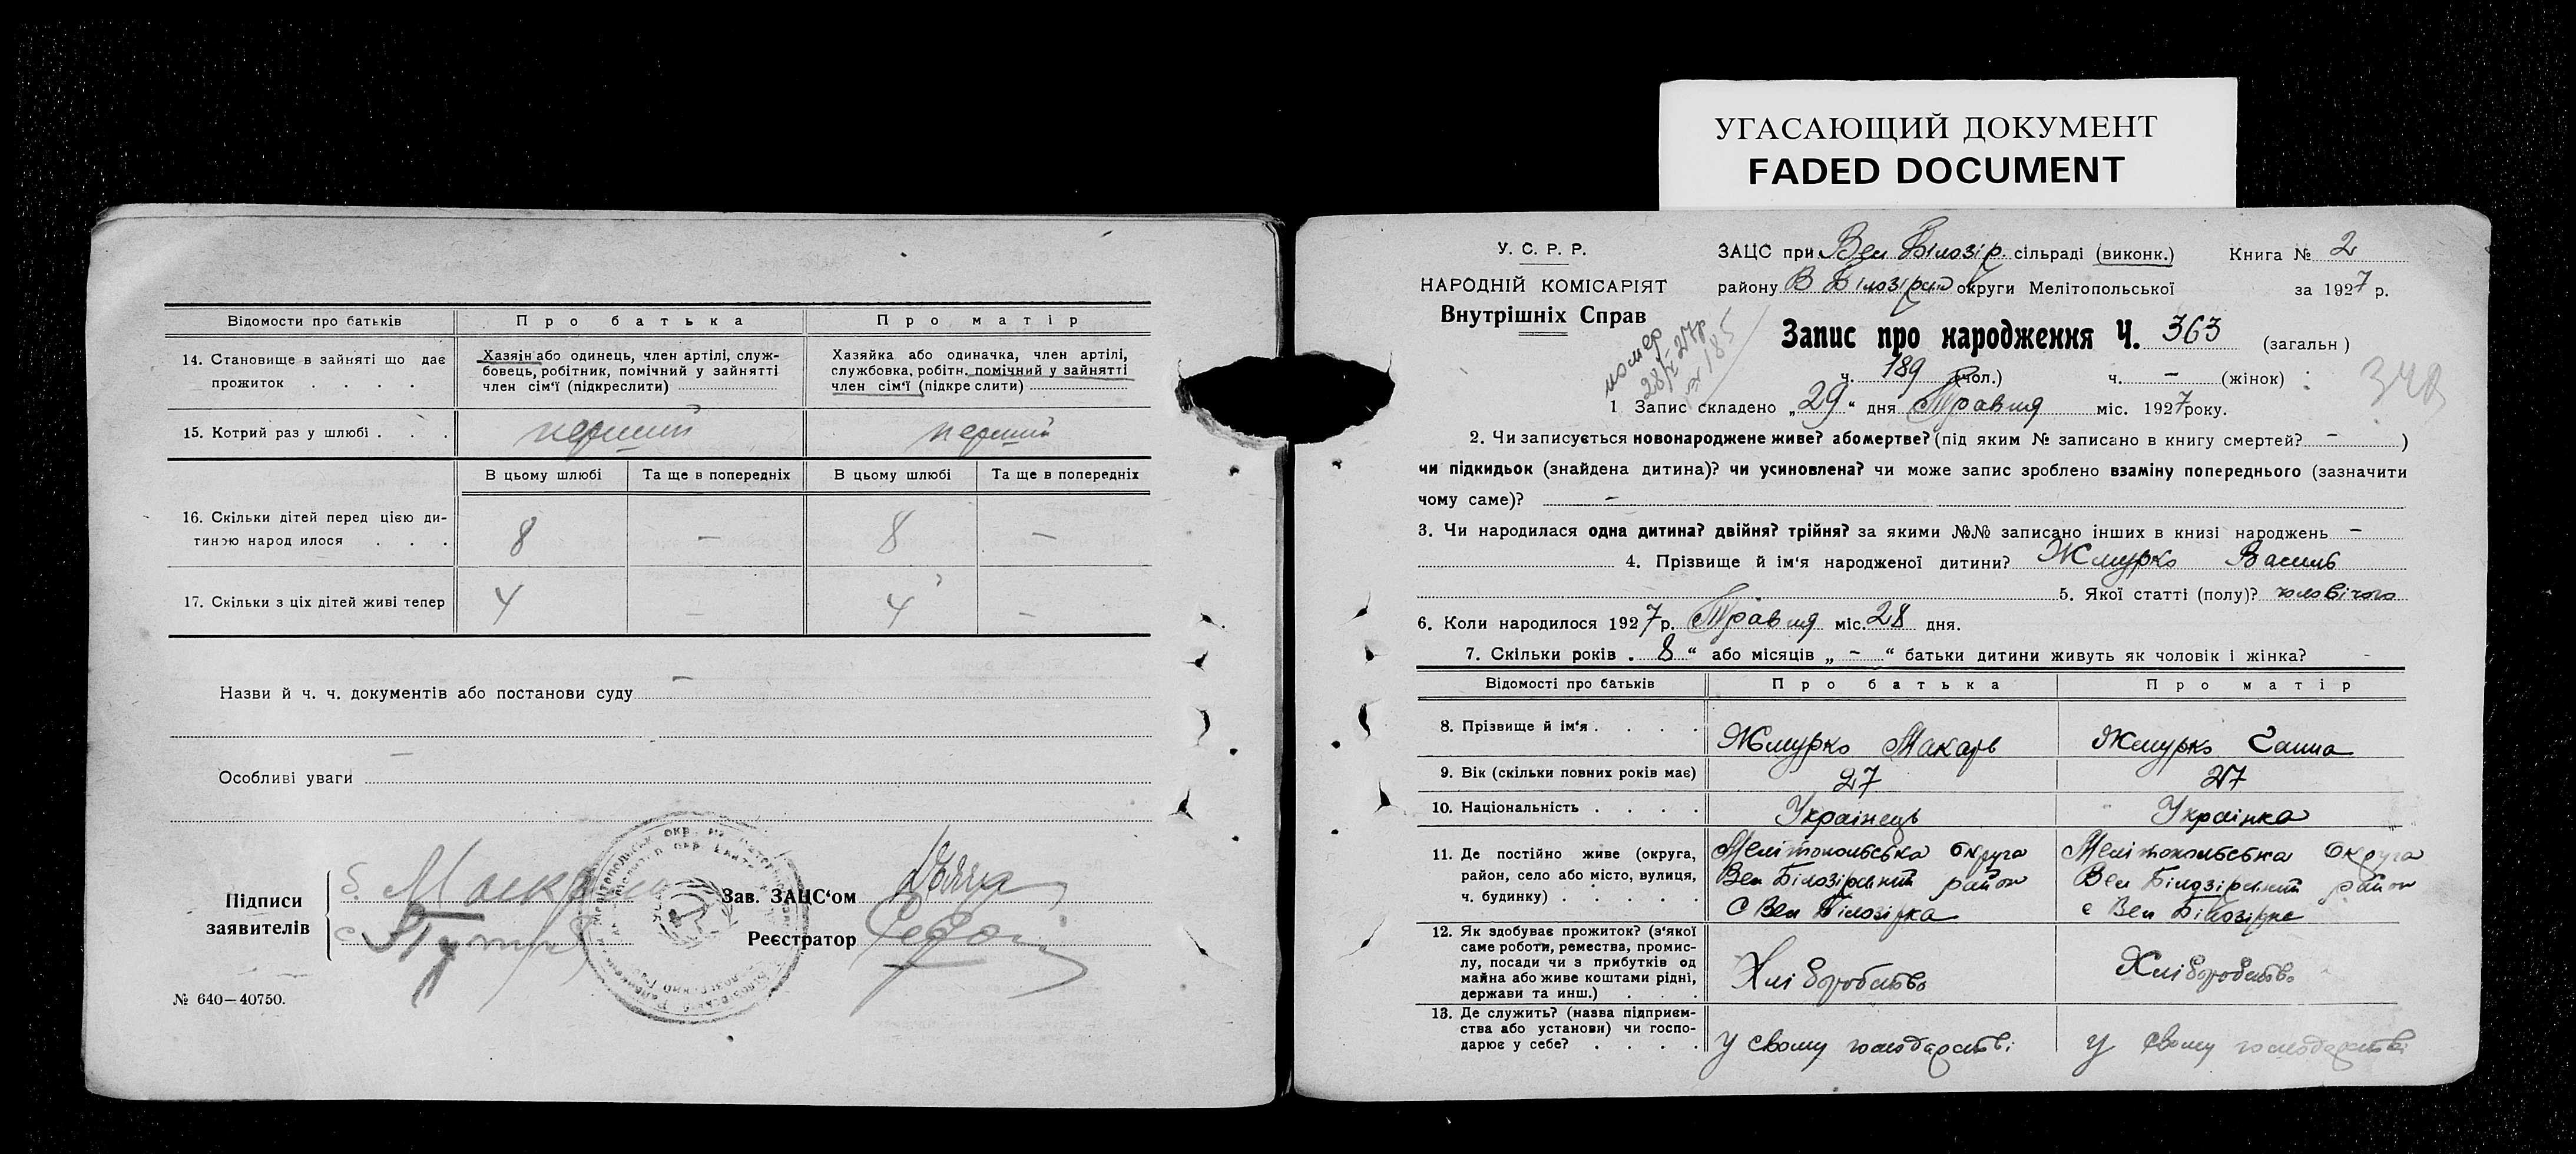 УГАСАЮЩИЙ ДОКУМЕНТ
FADED DOCUMENT
Відомости про батьків Про батька Про матір
14. Становище в зайняті що дає прожиток . . . .
Хазяін або одинець, член артілі, служ-
бовець, робітник, помічний у зайнятті
член сім'ї (підкреслити)
Хазяйка або одиначка, член артілі,
службовка, робітн. помічний у зайнятті
член сім'ї (підкреслити)
15. Котрий раз у шлюбі . . . перший перший
В цьому шлюбі Та ще в попередніх В цьому шлюбі Та ще в попередніх
16. Скільки дітей перед цією ди-
тиною народилося . . . 8 — 8 —
17. Скільки з ціх дітей живі тепер 4 — 4 —
Назви й ч. ч. документів або постанови суду —
Особливі уваги —
Підписи
заявителів
Зав. ЗАЦС'ом
Реєстратор
№ 640—40750.
У. С. Р. Р.
НАРОДНІЙ КОМІСАРІЯТ
Внутрішніх Справ
ЗАЦС при Вел Білозір. сільраді (виконк.) Книга № 2
району В Білозірськ округи Мелітопольської за 1927 р.
Запис про народження Ч. 363 (загальн)
ч. 189 (чол.) ч. — (жінок)
помер
№ 185
348
1 Запис складено „29" дня Травня міс. 1927 року.
2. Чи записується новонароджене живе? або мертве? (під яким № записано в книгу смертей? — )
чи підкидьок (знайдена дитина)? чи усиновлена? чи може запис зроблено взаміну попереднього (зазначити
чому саме)? —
3. Чи народилася одна дитина? двійня? трійня? за якими №№ записано інших в книзі народжень —
4. Прізвище й ім'я народженої дитини? Жмурко Василь
5. Якої статті (полу)? чоловічого
6. Коли народилося 1927 р. Травня міс. 28 дня.
7. Скільки років „8" або місяців „—" батьки дитини живуть як чоловік і жінка?
Відомості про батьків Про батька Про матір
8. Прізвище й ім'я . . . . Жмурко Макарь Жмурко Ганна
9. Вік (скільки повних років має) 27 27
10. Національність . . . . Украінець Украінка
11. Де постійно живе (округа,
район, село або місто, вулиця,
ч. будинку) . . . . .
Мелітопольська округа
Вел Білозірський район
С Вел Білозірка
Мелітопольська округа
Вел Білозірський район
с Вел Білозірка
12. Як здобуває прожиток? (з'якої
саме роботи, ремества, промис-
лу, посади чи з прибутків од
майна або живе коштами рідні,
держави та инш.) . . .
Хліборобство Хліборобство
13. Де служить? (назва підприєм-
ства або установи) чи госпо-
дарює у себе? . . . .
У свому господарстві У свому господарстві